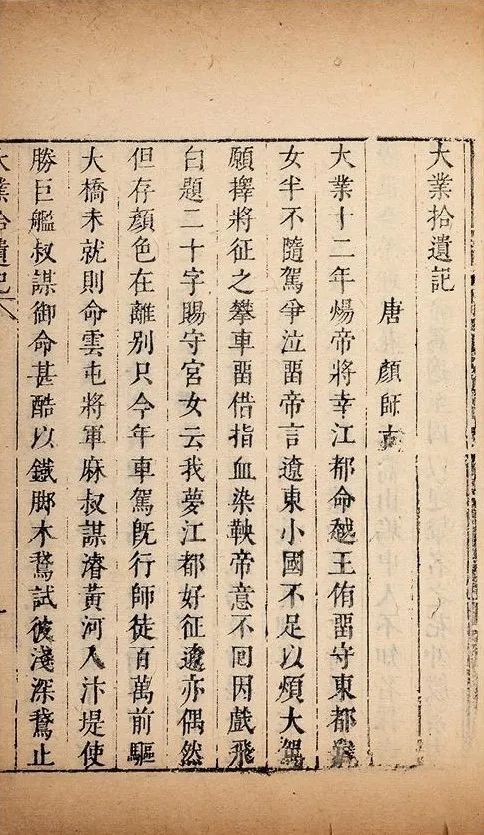 大業拾遺記
唐 顏師古
大業十二年煬帝將幸江都命越王侑畱守東都宮
女半不隨駕爭泣畱帝言遼東小國不足以煩大駕
願擇將征之攀車畱借指血染鞅帝意不回因戲飛
白題二十字賜守宮女云我夢江都好征遼亦偶然
但存顏色在離別只今年車駕旣行師徒百萬前驅
大橋未就則命雲屯將軍麻叔謀濬黃河入汴堤使
勝巨艦叔謀御命甚酷以鐵脚木鵞試彼淺深鵞止
大業拾遺記